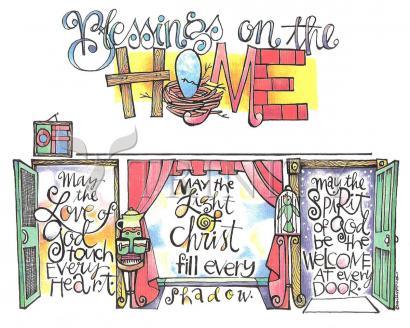 Blessings on the
HOME
May
the
Love of
God
touch
Every
Heart
MAY the
Light
of
Christ
fill every
shadow.
may the
SPIRIT
of God
be the
WELCOME
At every
DOOR.